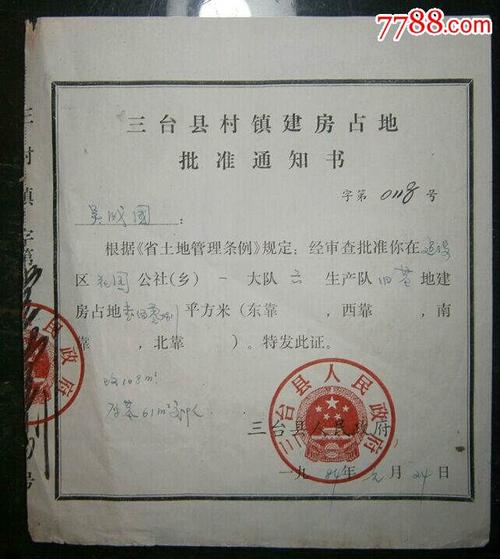 7788.com
三台县村镇建房占地
批准通知书
字第 0118 号
吴成国：
根据《省土地管理条例》规定：经审查批准你在建设
区 花园 公社(乡) 一 大队 六 生产队 旧基 地建
房占地 平方米（东靠 ，西靠 ，南
靠 ，北靠 ）。特发此证。
108m²
61m²
三台县人民政府
一九84年元月24日
三台县人民政府
三村镇字第
民政府
号